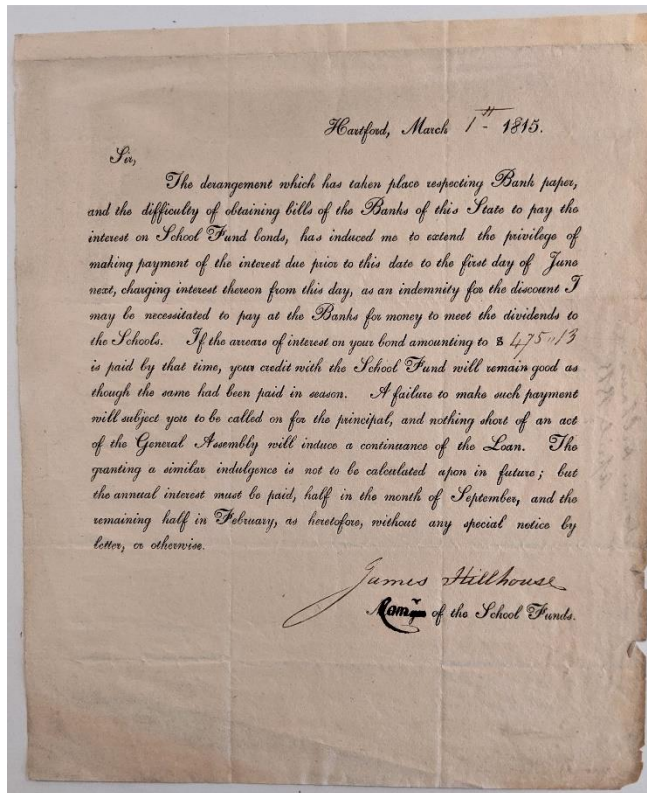 Hartford, March 1st 1815.
Sir,
The derangement which has taken place respecting Bank paper,
and the difficulty of obtaining bills of the Banks of this State to pay the
interest on School Fund bonds, has induced me to extend the privilege of
making payment of the interest due prior to this date to the first day of June
next, charging interest thereon from this day, as an indemnity for the discount I
may be necessitated to pay at the Banks for money to meet the dividends to
the Schools. If the arrears of interest on your bond amounting to $ 475"13
is paid by that time, your credit with the School Fund will remain good as
though the same had been paid in season. A failure to make such payment
will subject you to be called on for the principal, and nothing short of an act
of the General Assembly will induce a continuance of the Loan. The
granting a similar indulgence is not to be calculated upon in future; but
the annual interest must be paid, half in the month of September, and the
remaining half in February, as heretofore, without any special notice by
letter, or otherwise.
James Hillhouse
of the School Funds.